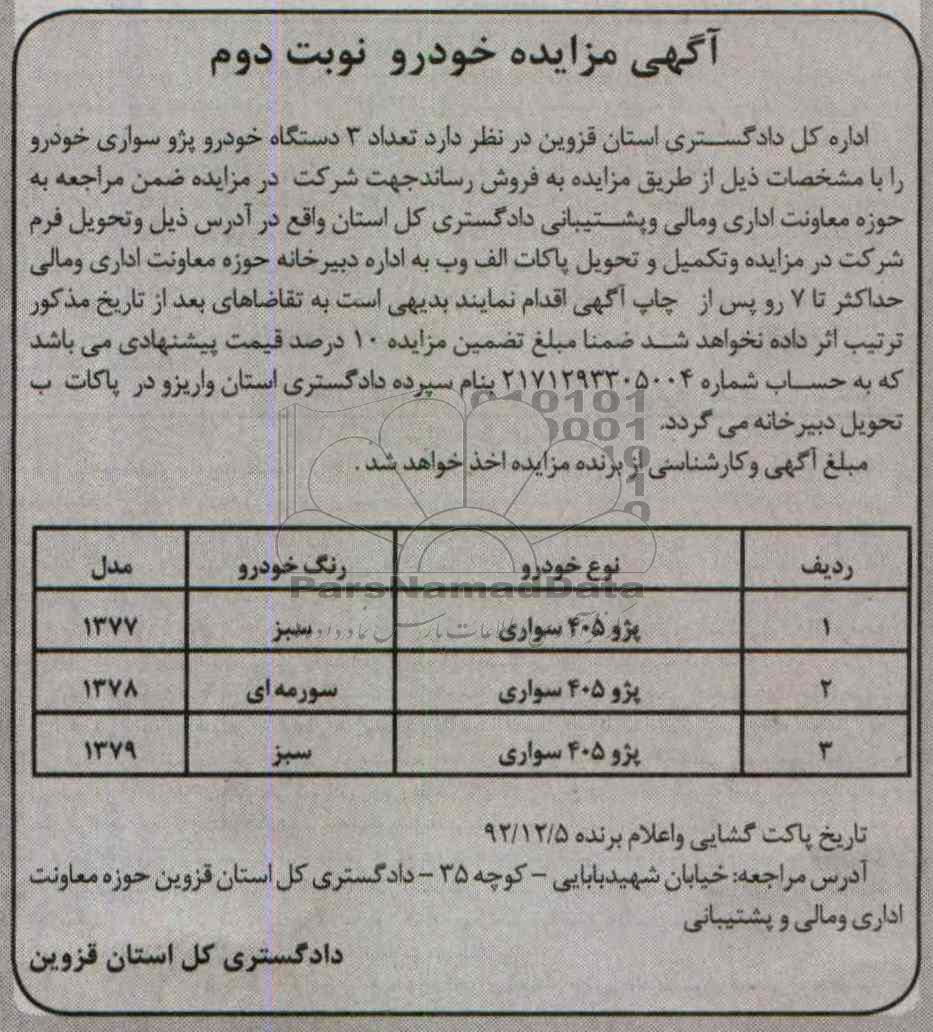 آگهی مزایده خودرو نوبت دوم
اداره کل دادگستری استان قزوین در نظر دارد تعداد ۳ دستگاه خودرو پژو سواری خودرو
را با مشخصات ذیل از طریق مزایده به فروش رساندجهت شرکت در مزایده ضمن مراجعه به
حوزه معاونت اداری ومالی وپشتیبانی دادگستری کل استان واقع در آدرس ذیل وتحویل فرم
شرکت در مزایده وتکمیل و تحویل پاکات الف وب به اداره دبیرخانه حوزه معاونت اداری ومالی
حداکثر تا ۷ رو پس از چاپ آگهی اقدام نمایند بدیهی است به تقاضاهای بعد از تاریخ مذکور
ترتیب اثر داده نخواهد شد ضمنا مبلغ تضمین مزایده ۱۰ درصد قیمت پیشنهادی می باشد
که به حساب شماره ۲۱۷۱۲۹۳۳۰۵۰۰۴ بنام سپرده دادگستری استان واریزو در پاکات ب
تحویل دبیرخانه می گردد.
مبلغ آگهی وکارشناسی از برنده مزایده اخذ خواهد شد .
ردیف نوع خودرو رنگ خودرو مدل
ParsNamadData
۱ پژو ۴۰۵ سواری سبز ۱۳۷۷
۲ پژو ۴۰۵ سواری سورمه ای ۱۳۷۸
۳ پژو ۴۰۵ سواری سبز ۱۳۷۹
تاریخ پاکت گشایی واعلام برنده ۹۲/۱۲/۵
آدرس مراجعه: خیابان شهیدبابایی – کوچه ۳۵ – دادگستری کل استان قزوین حوزه معاونت
اداری ومالی و پشتیبانی
دادگستری کل استان قزوین